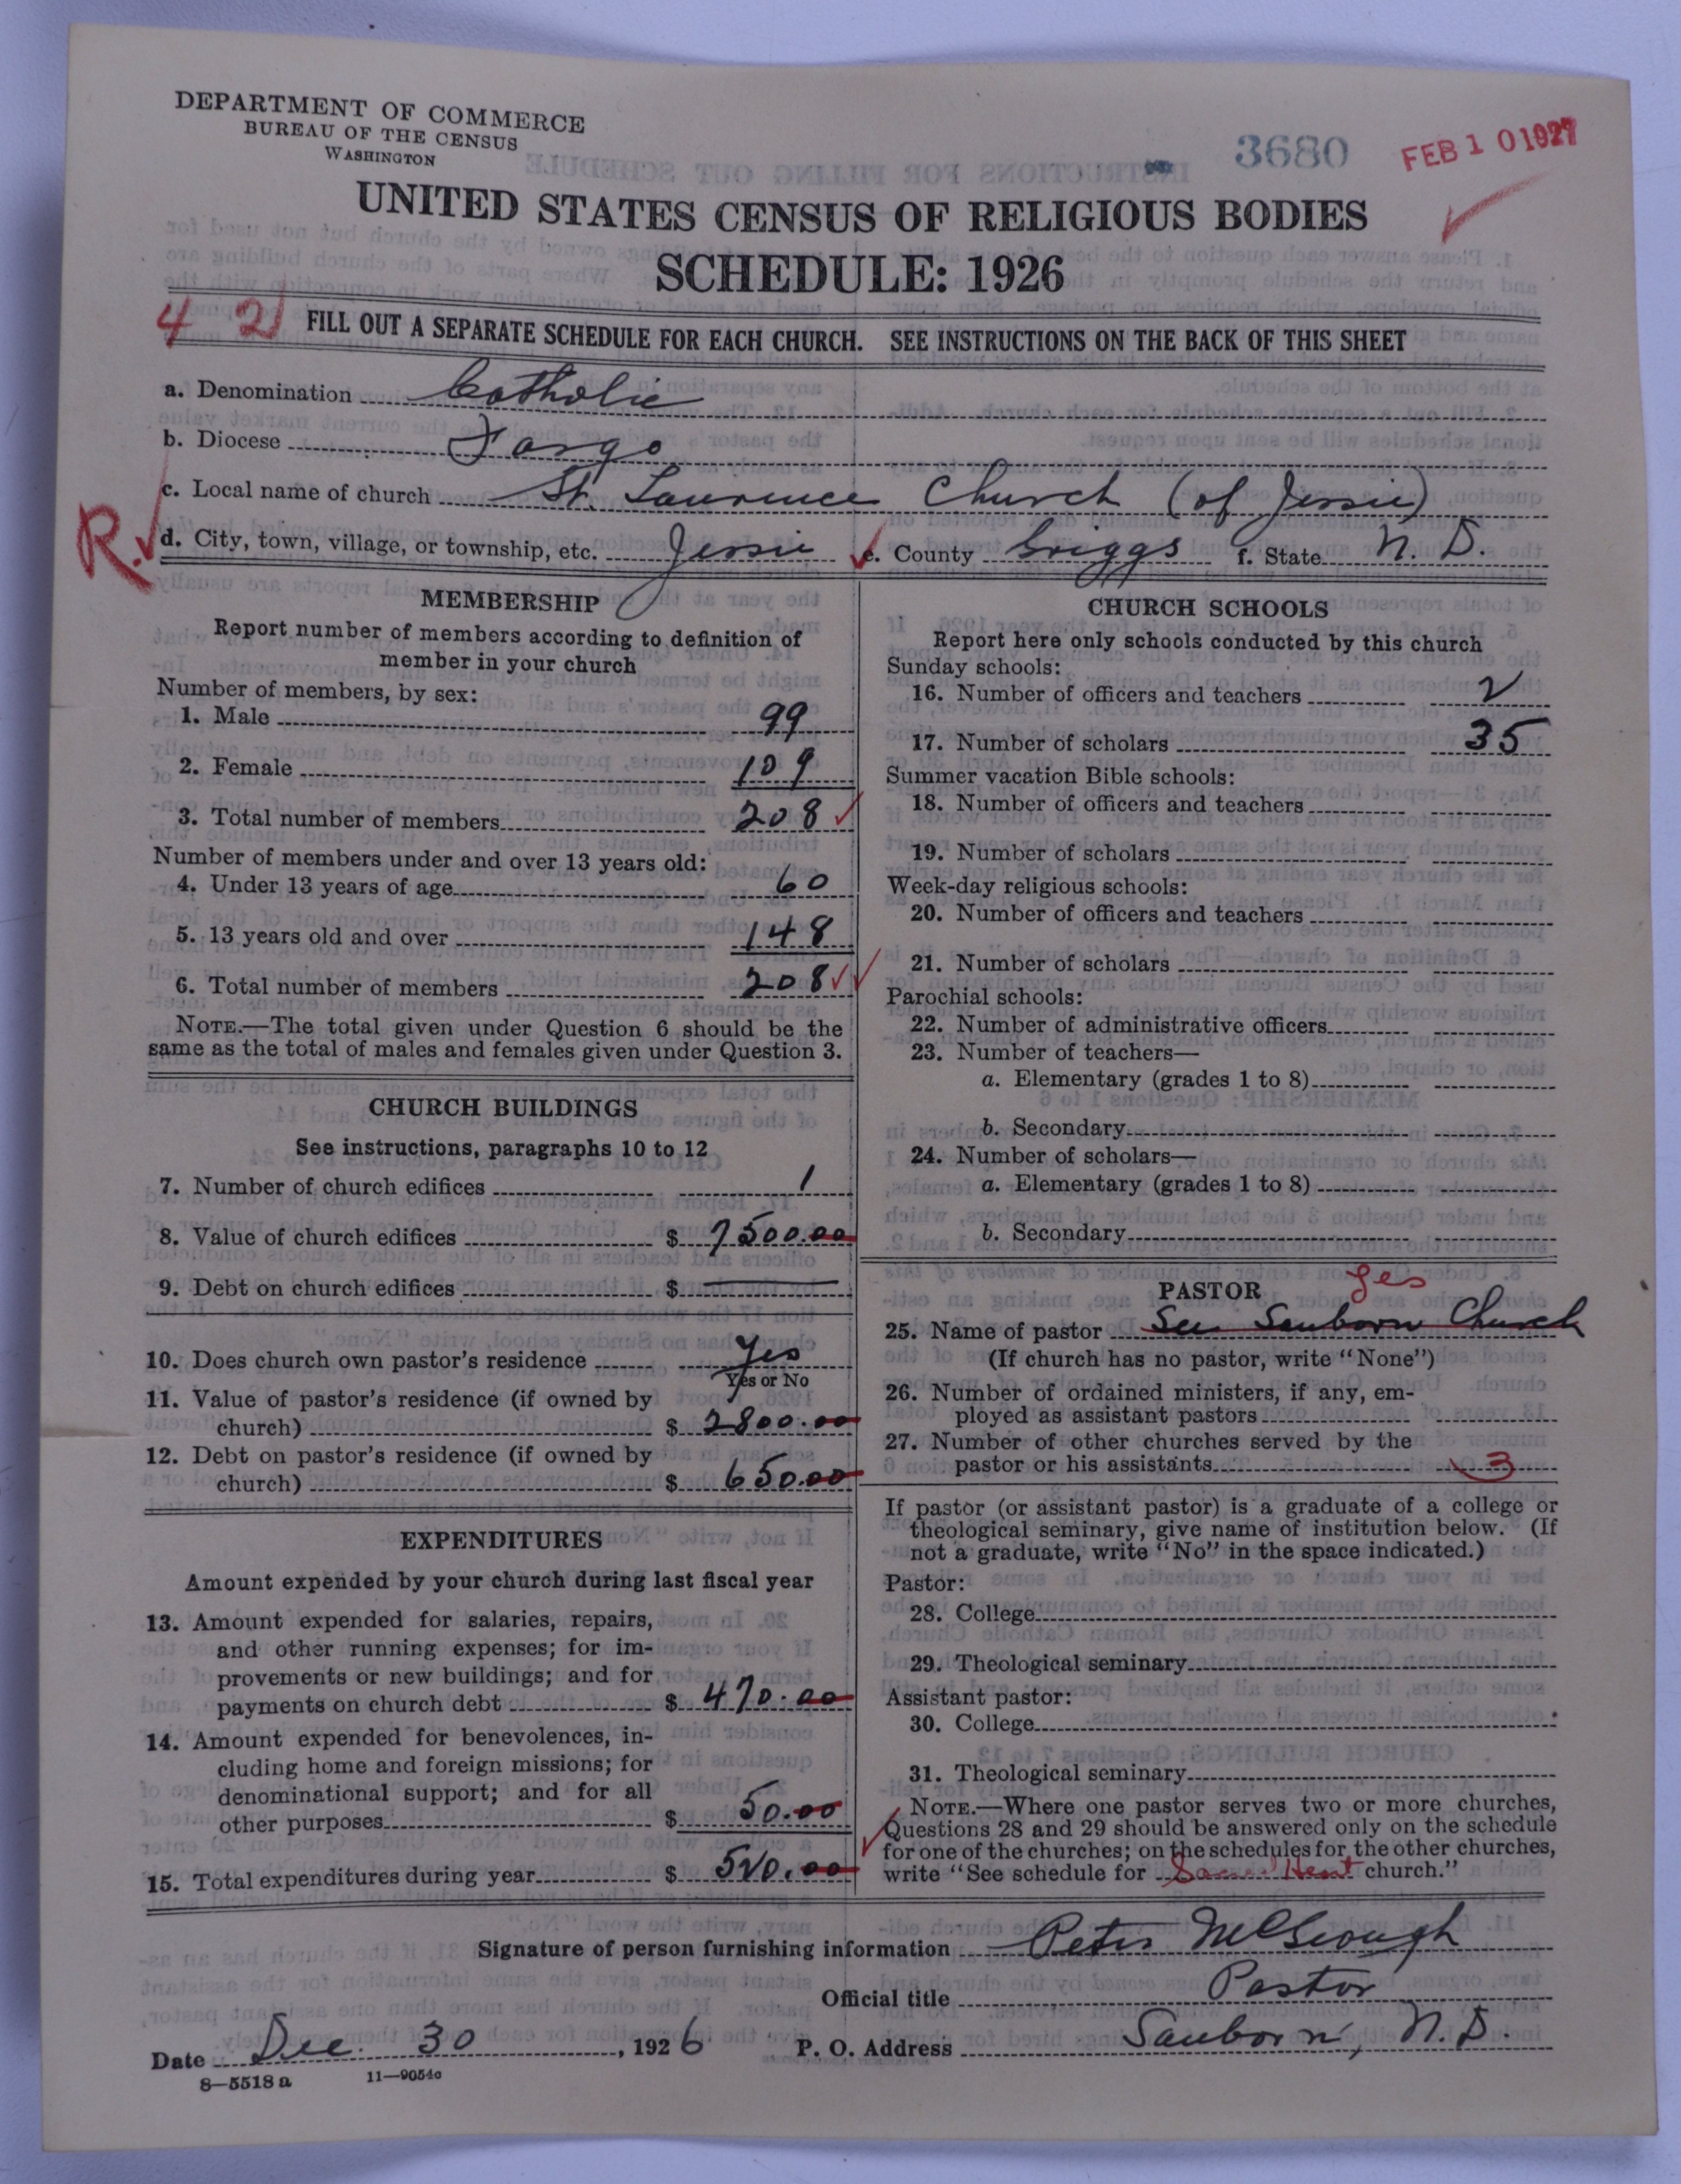 DEPARTMENT OF COMMERCE
BUREAU OF THE CENSUS
WASHINGTON
3680
FEB 10 1927
UNITED STATES CENSUS OF RELIGIOUS BODIES
SCHEDULE: 1926
4 2
FILL OUT A SEPARATE SCHEDULE FOR EACH CHURCH. SEE INSTRUCTIONS ON THE BACK OF THIS SHEET
a. Denomination Catholic
b. Diocese Fargo
c. Local name of church St. Lawrence Church (of Jessie)
R.
d. City, town, village, or township, etc. Jessie e. County Griggs f. State N. D.
MEMBERSHIP
Report number of members according to definition of
member in your church
Number of members, by sex:
1. Male 99
2. Female 109
3. Total number of members 208
Number of members under and over 13 years old:
4. Under 13 years of age 60
5. 13 years old and over 148
6. Total number of members 208
NOTE.—The total given under Question 6 should be the
same as the total of males and females given under Question 3.
CHURCH BUILDINGS
See instructions, paragraphs 10 to 12
7. Number of church edifices 1
8. Value of church edifices $ 7500.00
9. Debt on church edifices $ ——
10. Does church own pastor's residence Yes
Yes or No
11. Value of pastor's residence (if owned by
church) $ 2800.00
12. Debt on pastor's residence (if owned by
church) $ 650.00
EXPENDITURES
Amount expended by your church during last fiscal year
13. Amount expended for salaries, repairs,
and other running expenses; for im-
provements or new buildings; and for
payments on church debt $ 470.00
14. Amount expended for benevolences, in-
cluding home and foreign missions; for
denominational support; and for all
other purposes $ 50.00
15. Total expenditures during year $ 520.00
CHURCH SCHOOLS
Report here only schools conducted by this church
Sunday schools:
16. Number of officers and teachers 2
17. Number of scholars 35
Summer vacation Bible schools:
18. Number of officers and teachers
19. Number of scholars
Week-day religious schools:
20. Number of officers and teachers
21. Number of scholars
Parochial schools:
22. Number of administrative officers
23. Number of teachers—
a. Elementary (grades 1 to 8)
b. Secondary
24. Number of scholars—
a. Elementary (grades 1 to 8)
b. Secondary
PASTOR yes
25. Name of pastor See Sanborn Church
(If church has no pastor, write "None")
26. Number of ordained ministers, if any, em-
ployed as assistant pastors
27. Number of other churches served by the
pastor or his assistants 3
If pastor (or assistant pastor) is a graduate of a college or
theological seminary, give name of institution below. (If
not a graduate, write "No" in the space indicated.)
Pastor:
28. College
29. Theological seminary
Assistant pastor:
30. College
31. Theological seminary
NOTE.—Where one pastor serves two or more churches,
Questions 28 and 29 should be answered only on the schedule
for one of the churches; on the schedules for the other churches,
write "See schedule for Sacred Heart church."
Signature of person furnishing information Peter McGeough
Official title Pastor
Date Dec. 30, 1926 P. O. Address Sanborn, N. D.
8—5518 a 11—9054a